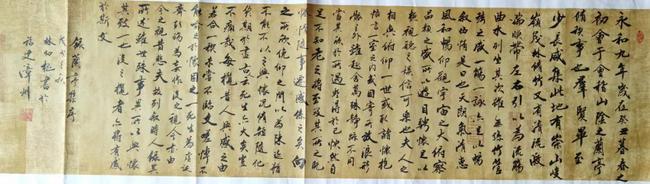 永和九年歲在癸丑暮春之
初會于會稽山陰之蘭亭
脩稧事也羣賢畢至
少長咸集此地有崇山峻
領茂林脩竹又有清流激
湍暎帶左右引以為流觴
曲水列坐其次雖無絲竹管
弦之盛一觴一詠亦足以暢
叙幽情是日也天朗氣清惠
風和暢仰觀宇宙之大俯察
品類之盛所以遊目騁懷足以
極視聽之娛信可樂也夫人之
相與俯仰一世或取諸懷抱
悟言一室之內或因寄所託放浪形
骸之外雖趣舍萬殊靜躁不同
當其欣於所遇暫得於己快然自
足不知老之將至及其所之既
惓情隨事遷感慨係之矣向
之所欣俛仰之間以為陳迹猶
不能不以之興懷況脩短隨化
終期於盡古人云死生亦大矣豈
不痛哉每攬昔人興感之由
若合一契未嘗不臨文嗟悼不
能喻之於懷固知一死生為虛誕
齊彭殤為妄作後之視今亦由
今之視昔悲夫故列叙時人錄其
所述雖世殊事異所以興懷
其致一也後之攬者亦將有感
於斯文
錄蘭亭集序
戊戌年秋
林書於
福建漳州